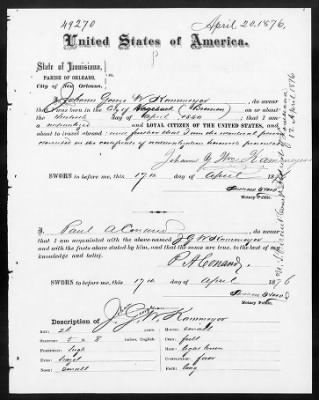 49270
April 20, 1876.
United States of America.
State of Louisiana,
PARISH OF ORLEANS,
City of New Orleans.
I, Johann Georg W Kammeyer, do swear
that I was born in the City of (Bremen)
on the day of April 1850
a naturalized and LOYAL CITIZEN OF THE UNITED STATES, and about
to travel abroad: and further that I am the identical person
described in the certificate of naturalization herewith presented
Johann G Wm Kammeyer
SWORN to before me, this 17th day of April 1876
Notary Public.
17 April 1876
I, Paul A Conand, do swear
that I am acquainted with the above-named J G W Kammeyer
and with the facts above stated by him, and that the same are true, to the best of my
knowledge and belief.
P A Conand
SWORN to before me, this 17th day of April 1876
Notary Public.
Description of J G W. Kammeyer
Age: 26
Stature: 5 " 8 inches, English
Forehead: high
Eyes: hazel
Nose: small
Mouth: small
Chin: full
Hair: light brown
Complexion: fair
Face: long